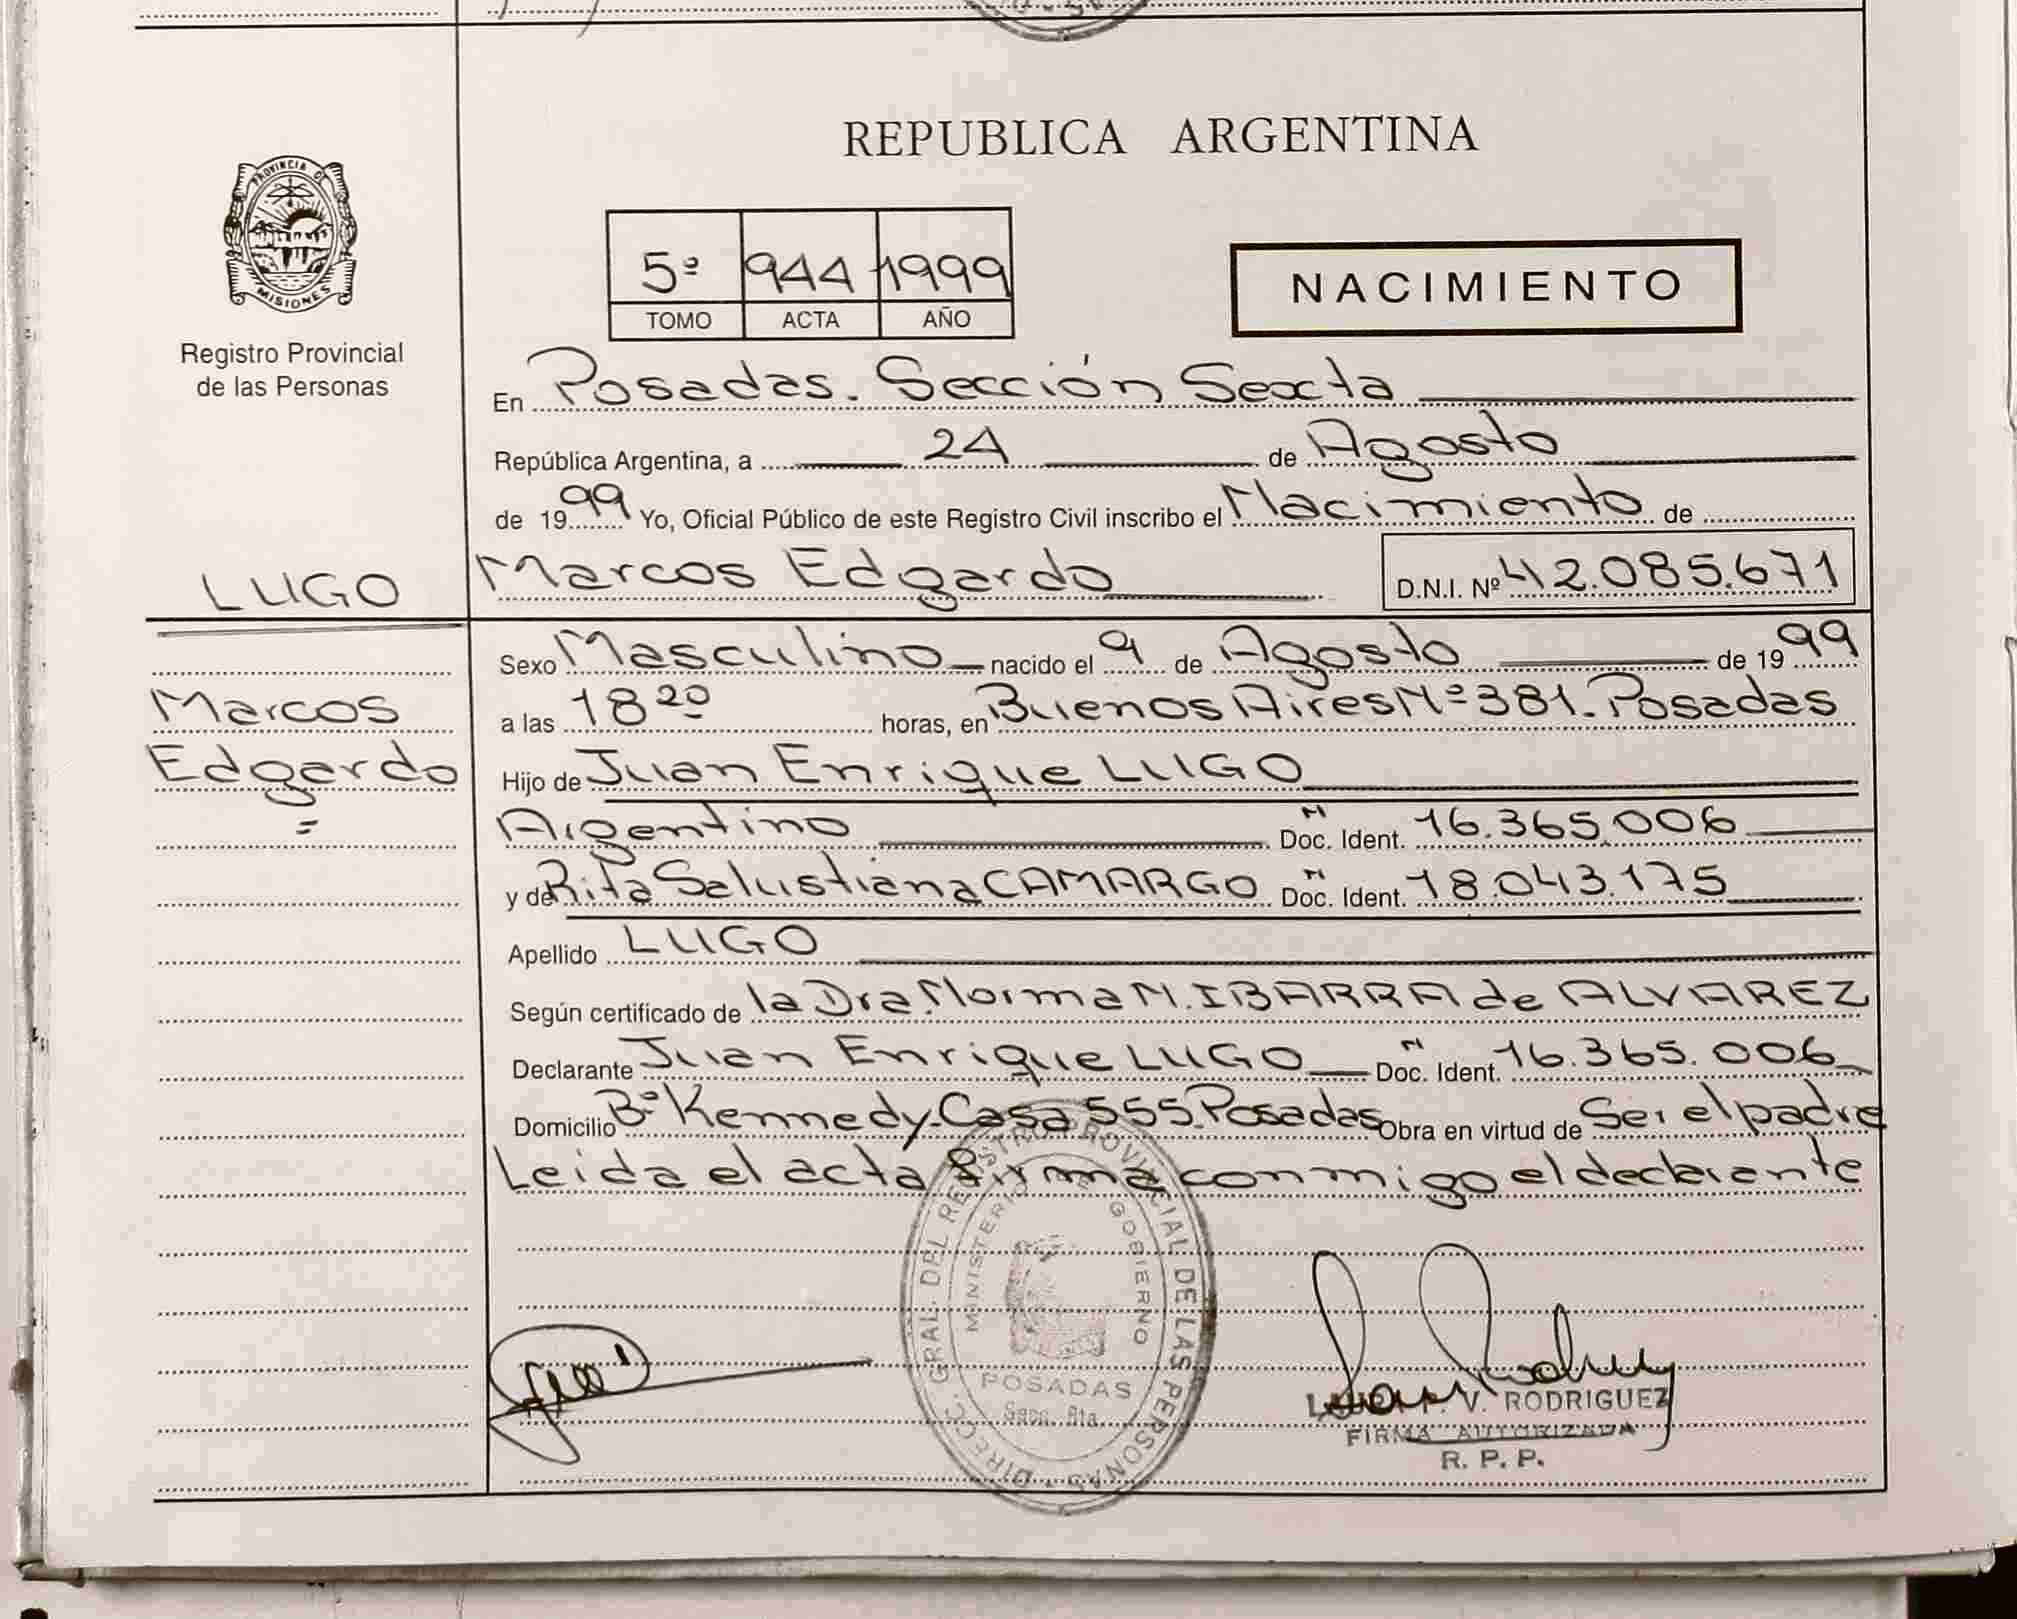 REPUBLICA ARGENTINA
PROVINCIA DE
MISIONES
Registro Provincial
de las Personas
5º 944 1999
TOMO ACTA AÑO
NACIMIENTO
En Posadas. Sección Sexta
República Argentina, a 24 de Agosto
de 1999 Yo, Oficial Público de este Registro Civil inscribo el Nacimiento de
LUGO
Marcos Edgardo D.N.I. Nº 42.085.671
Sexo Masculino nacido el 9 de Agosto de 1999
Marcos
Edgardo
a las 18 20 horas, en Buenos Aires Nº 381. Posadas
Hijo de Juan Enrique LUGO
Argentino Doc. Ident. 16.365.006
y de Rita Salustiana CAMARGO Doc. Ident. 18.043.175
Apellido LUGO
Según certificado de la Dra Norma N. IBARRA de ALVAREZ
Declarante Juan Enrique LUGO Doc. Ident. 16.365.006
Domicilio Bº Kennedy-Casa 555. Posadas Obra en virtud de Ser el padre
Leida el acta firma conmigo el declarante
DIREC. GRAL. DEL REGISTRO PROVINCIAL DE LAS PERSONAS
MINISTERIO DE GOBIERNO
POSADAS
Secc. 6ta.
V. RODRIGUEZ
FIRMA AUTORIZADA
R. P. P.